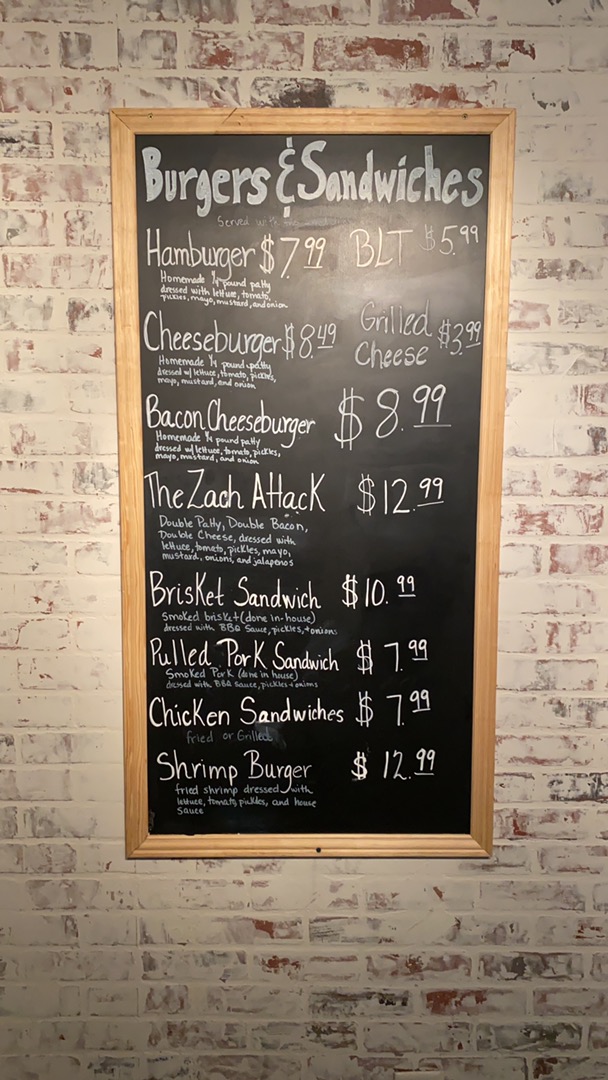 Burgers & Sandwiches
Served with
Hamburger $7.99
Homemade ¼ pound patty
dressed with lettuce, tomato,
pickles, mayo, mustard, and onion
BLT $5.99
Cheeseburger $8.49
Homemade ¼ pound patty
dressed w/ lettuce, tomato, pickles,
mayo, mustard, and onion
Grilled
Cheese $3.99
Bacon Cheeseburger $8.99
Homemade ¼ pound patty
dressed w/ lettuce, tomato, pickles,
mayo, mustard, and onion
The Zach Attack $12.99
Double Patty, Double Bacon,
Double Cheese, dressed with
lettuce, tomato, pickles, mayo,
mustard, onions, and jalapenos
Brisket Sandwich $10.99
Smoked brisket (done in-house)
dressed with BBQ Sauce, pickles, + onions
Pulled Pork Sandwich $7.99
Smoked Pork (done in house)
dressed with BBQ sauce, pickles + onions
Chicken Sandwiches $7.99
fried or Grilled
Shrimp Burger $12.99
fried shrimp dressed with
lettuce, tomato, pickles, and house
sauce